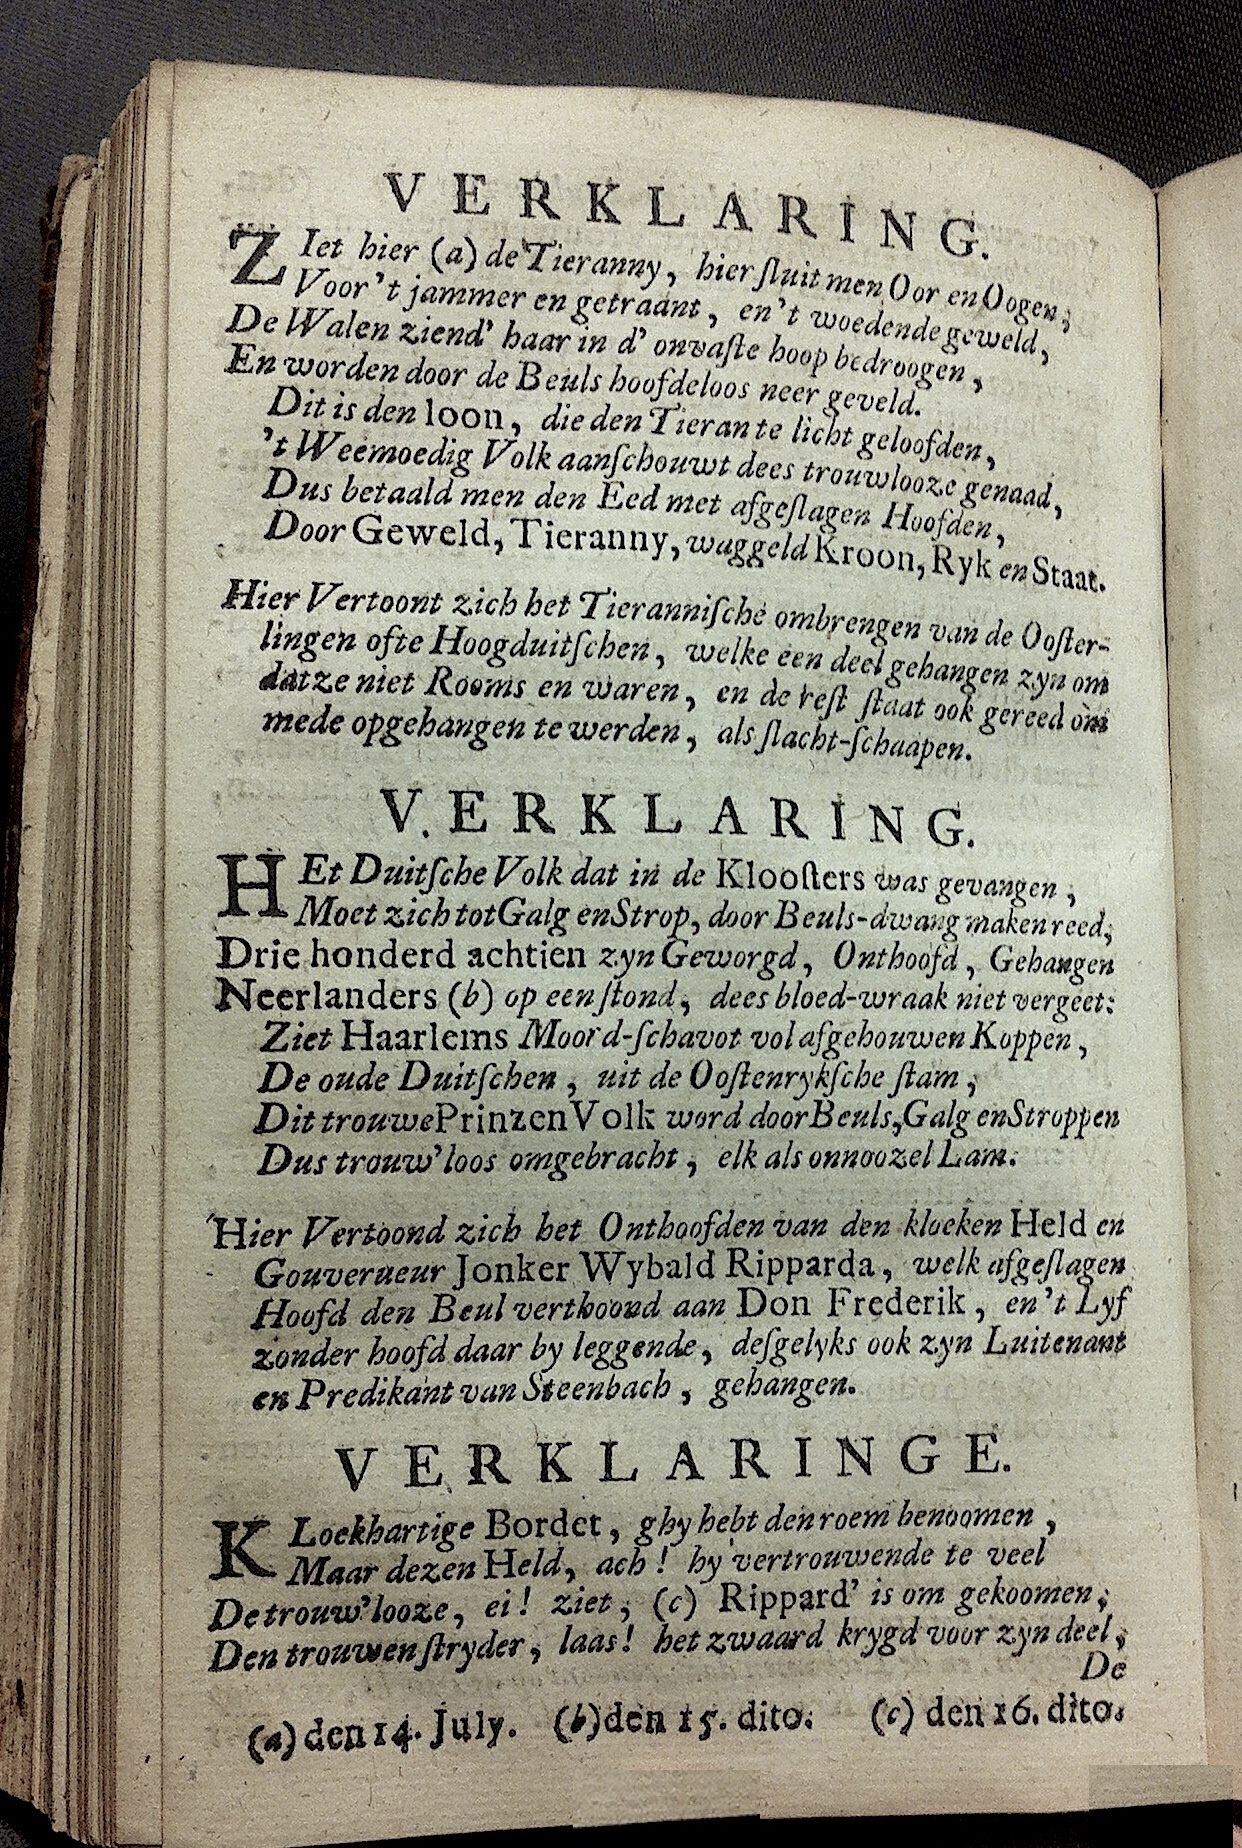 VERKLARING.
ZIet hier (a) de Tieranny, hier ſluit men Oor en Oogen,
Voor 't jammer en getraant, en 't woedende geweld,
De Walen ziend' haar in d' onvaſte hoop bedroogen,
En worden door de Beuls hoofdeloos neer geveld.
Dit is den loon, die den Tierante licht geloofden,
't Weemoedig Volk aanſchouwt dees trouwlooze genaad,
Dus betaald men den Eed met afgeſlagen Hoofden,
Door Geweld, Tieranny, waggeld Kroon, Ryk en Staat.
Hier Vertoont zich het Tieranniſche ombrengen van de Ooſter-
lingen ofte Hoogduitſchen, welke een deel gehangen zyn om
datze niet Rooms en waren, en de reſt ſtaat ook gereed om
mede opgehangen te werden, als ſlacht-ſchaapen.
VERKLARING.
HEt Duitſche Volk dat in de Klooſters was gevangen,
Moet zich tot Galg en Strop, door Beuls-dwang maken reed;
Drie honderd achtien zyn Geworgd, Onthoofd, Gehangen
Neerlanders (b) op een ſtond, dees bloed-wraak niet vergeet:
Ziet Haarlems Moord-ſchavot vol afgehouwen Koppen,
De oude Duitſchen, uit de Ooſtenrykſche ſtam,
Dit trouwe Prinzen Volk word door Beuls, Galg en Stroppen
Dus trouw'loos omgebracht, elk als onnoozel Lam.
Hier Vertoond zich het Onthoofden van den kloeken Held en
Gouverneur Jonker Wybald Ripparda, welk afgeſlagen
Hoofd den Beul verthoond aan Don Frederik, en 't Lyf
zonder hoofd daar by leggende, deſgelyks ook zyn Luitenant
en Predikant van Steenbach, gehangen.
VERKLARINGE.
KLoekhartige Bordet, ghy hebt den roem benoomen,
Maar dezen Held, ach! hy vertrouwende te veel
De trouw'looze, ei! ziet, (c) Rippard' is om gekoomen;
Den trouwen ſtryder, laas! het zwaard krygd voor zyn deel,
De
(a) den 14. July. (b) den 15. dito. (c) den 16. dito.